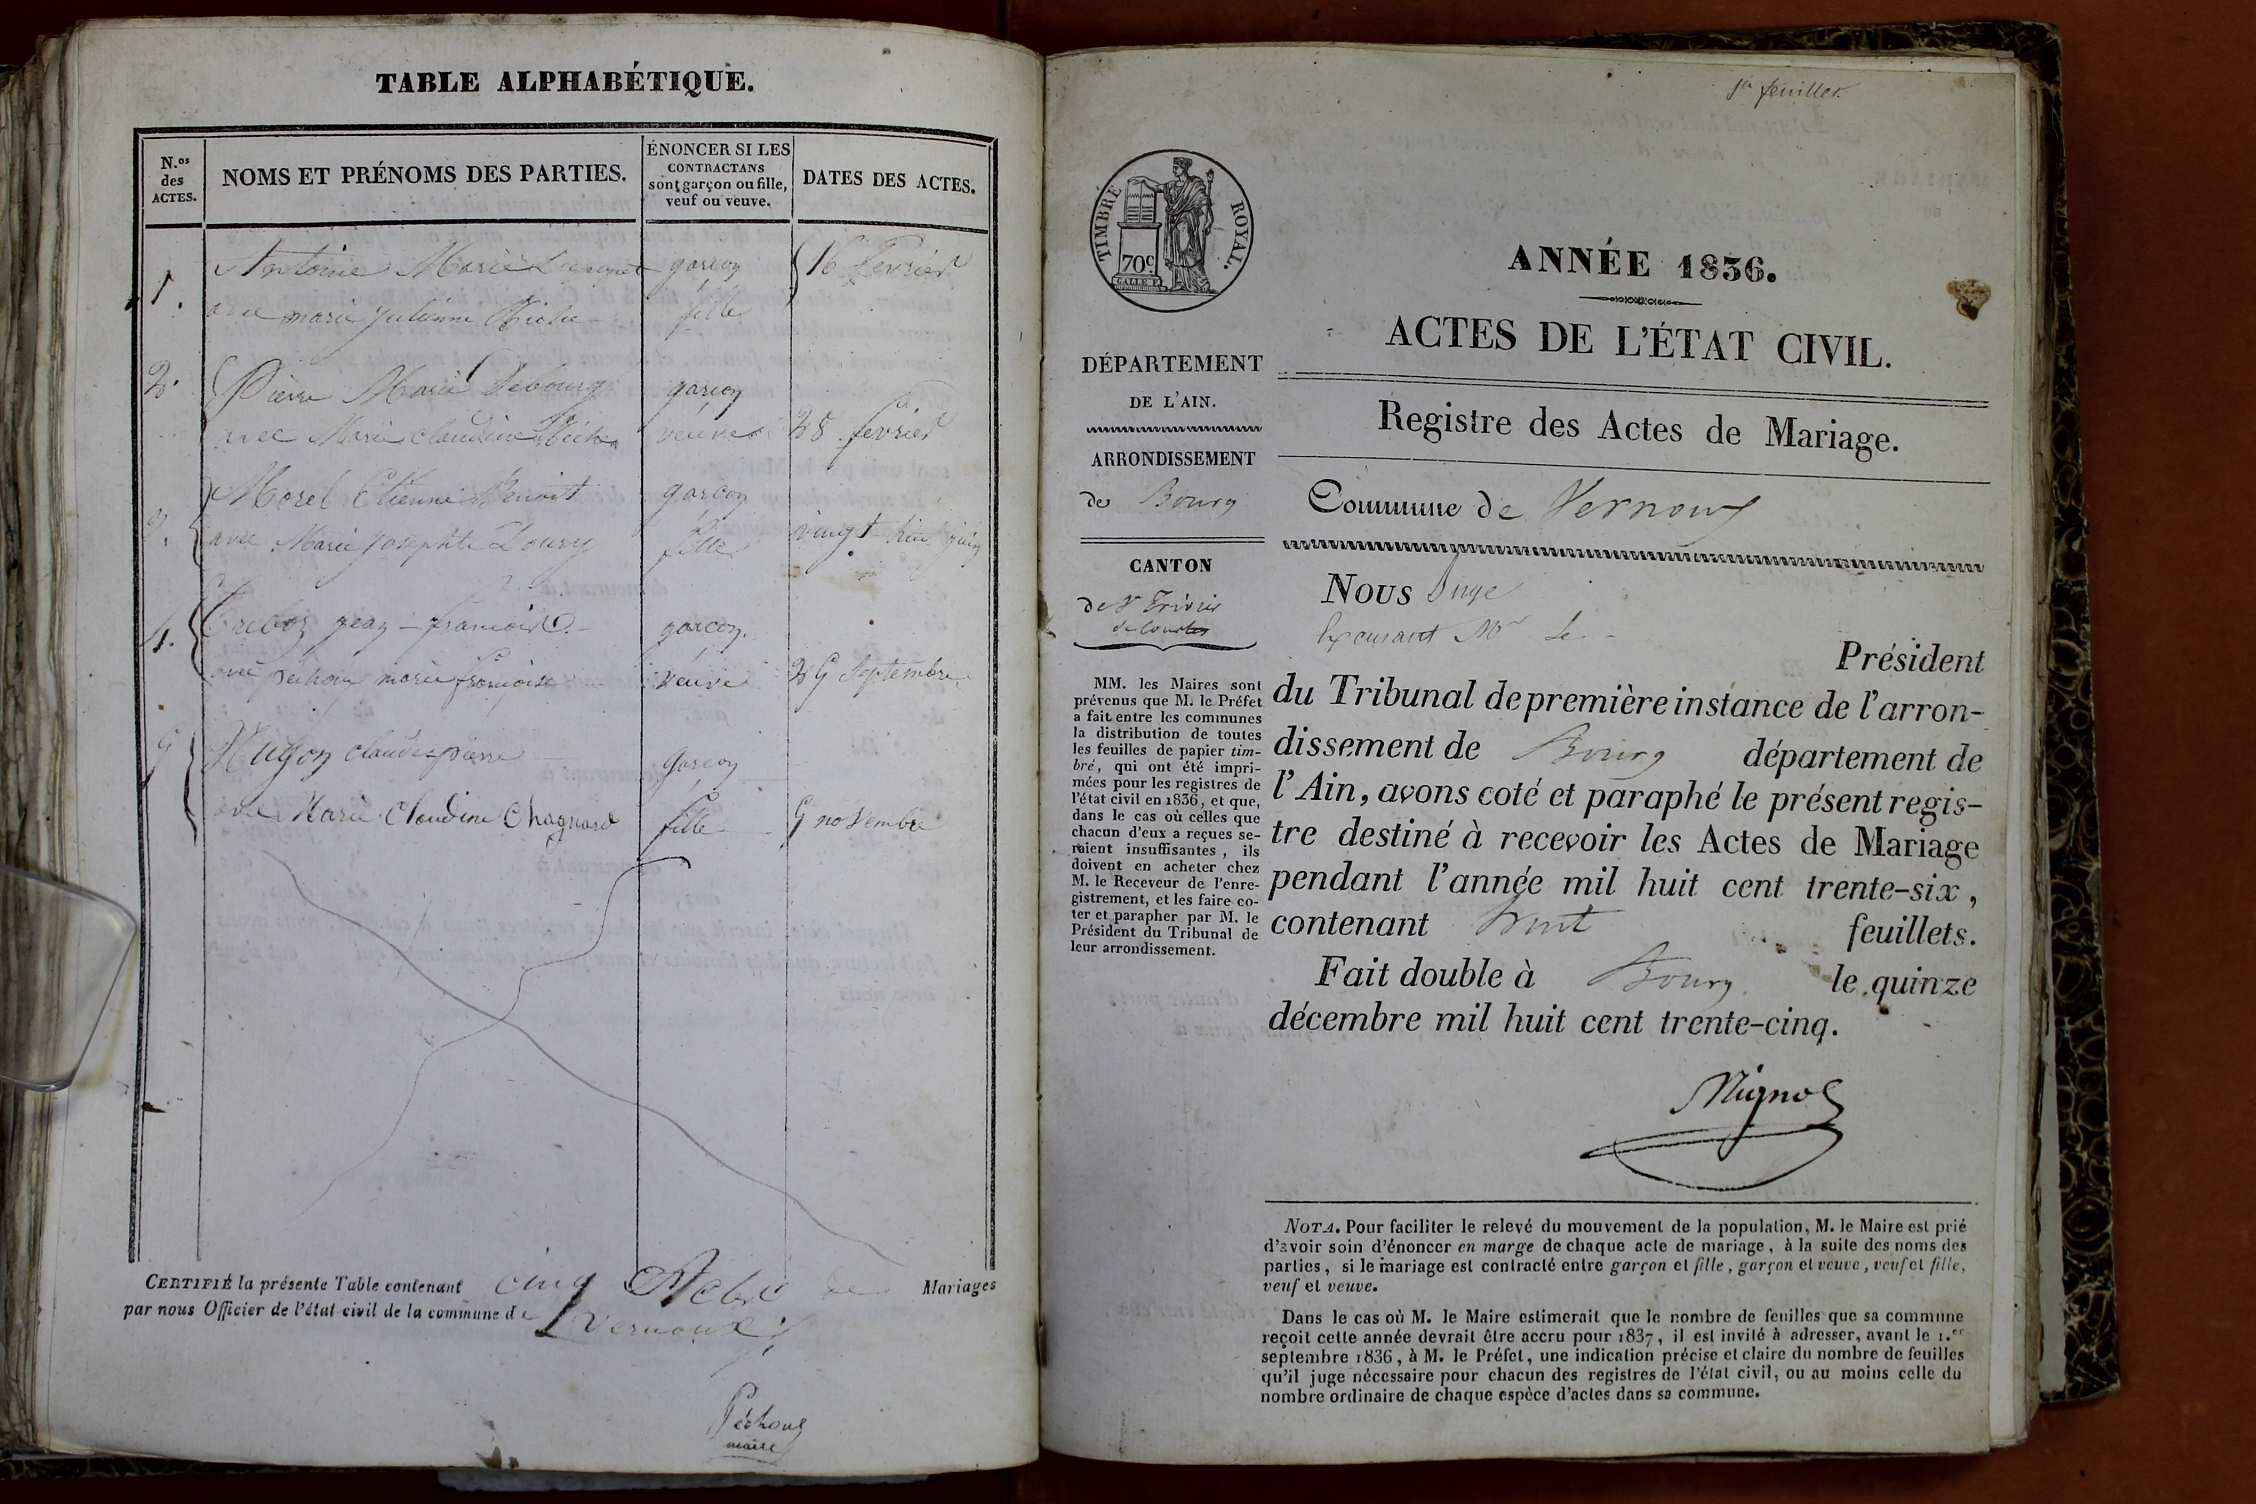 TABLE ALPHABÉTIQUE.
N.os des ACTES.
NOMS ET PRÉNOMS DES PARTIES.
ÉNONCER SI LES
CONTRACTANS
sont garçon ou fille,
veuf ou veuve.
DATES DES ACTES.
1. Antoine Marie garcon 16 fevrier
avec marie julienne fille
2. Pierre Marie Debourg garcon
avec Marie claudine veuve 28 fevrier
3. Morel Etienne Benoit garcon
avec Marie josephte fille vingt huit juin
4. jean francois garcon.
avec péchoux marie françoise veuve 29 Septembre
5 Hugon claude pierre garcon
avec Marie Claudine Chagnard fille 9 novembre
CERTIFIÉ la présente Table contenant cinq Acte de Mariages
par nous Officier de l'état civil de la commune de vernoux
Péchoux
maire
1er feuillet.
TIMBRE ROYAL.
70c
ANNÉE 1836.
ACTES DE L'ÉTAT CIVIL.
Registre des Actes de Mariage.
Commune de Vernoux
DÉPARTEMENT
DE L'AIN.
ARRONDISSEMENT
de Bourg
CANTON
de St Trivier
de Courtes
MM. les Maires sont
prévenus que M. le Préfet
a fait entre les communes
la distribution de toutes
les feuilles de papier tim-
bré, qui ont été impri-
mées pour les registres de
l'état civil en 1836, et que,
dans le cas où celles que
chacun d'eux a reçues se-
raient insuffisantes, ils
doivent en acheter chez
M. le Receveur de l'enre-
gistrement, et les faire co-
ter et parapher par M. le
Président du Tribunal de
leur arrondissement.
Nous Juge
Excusant Mr le
Président
du Tribunal de première instance de l'arron-
dissement de Bourg département de
l'Ain, avons coté et paraphé le présent regis-
tre destiné à recevoir les Actes de Mariage
pendant l'année mil huit cent trente-six,
contenant huit feuillets.
Fait double à Bourg le quinze
décembre mil huit cent trente-cinq.
NOTA. Pour faciliter le relevé du mouvement de la population, M. le Maire est prié
d'avoir soin d'énoncer en marge de chaque acte de mariage, à la suite des noms des
parties, si le mariage est contracté entre garçon et fille, garçon et veuve, veuf et fille,
veuf et veuve.
Dans le cas où M. le Maire estimerait que le nombre de feuilles que sa commune
reçoit cette année devrait être accru pour 1837, il est invité à adresser, avant le 1.er
septembre 1836, à M. le Préfet, une indication précise et claire du nombre de feuilles
qu'il juge nécessaire pour chacun des registres de l'état civil, ou au moins celle du
nombre ordinaire de chaque espèce d'actes dans sa commune.